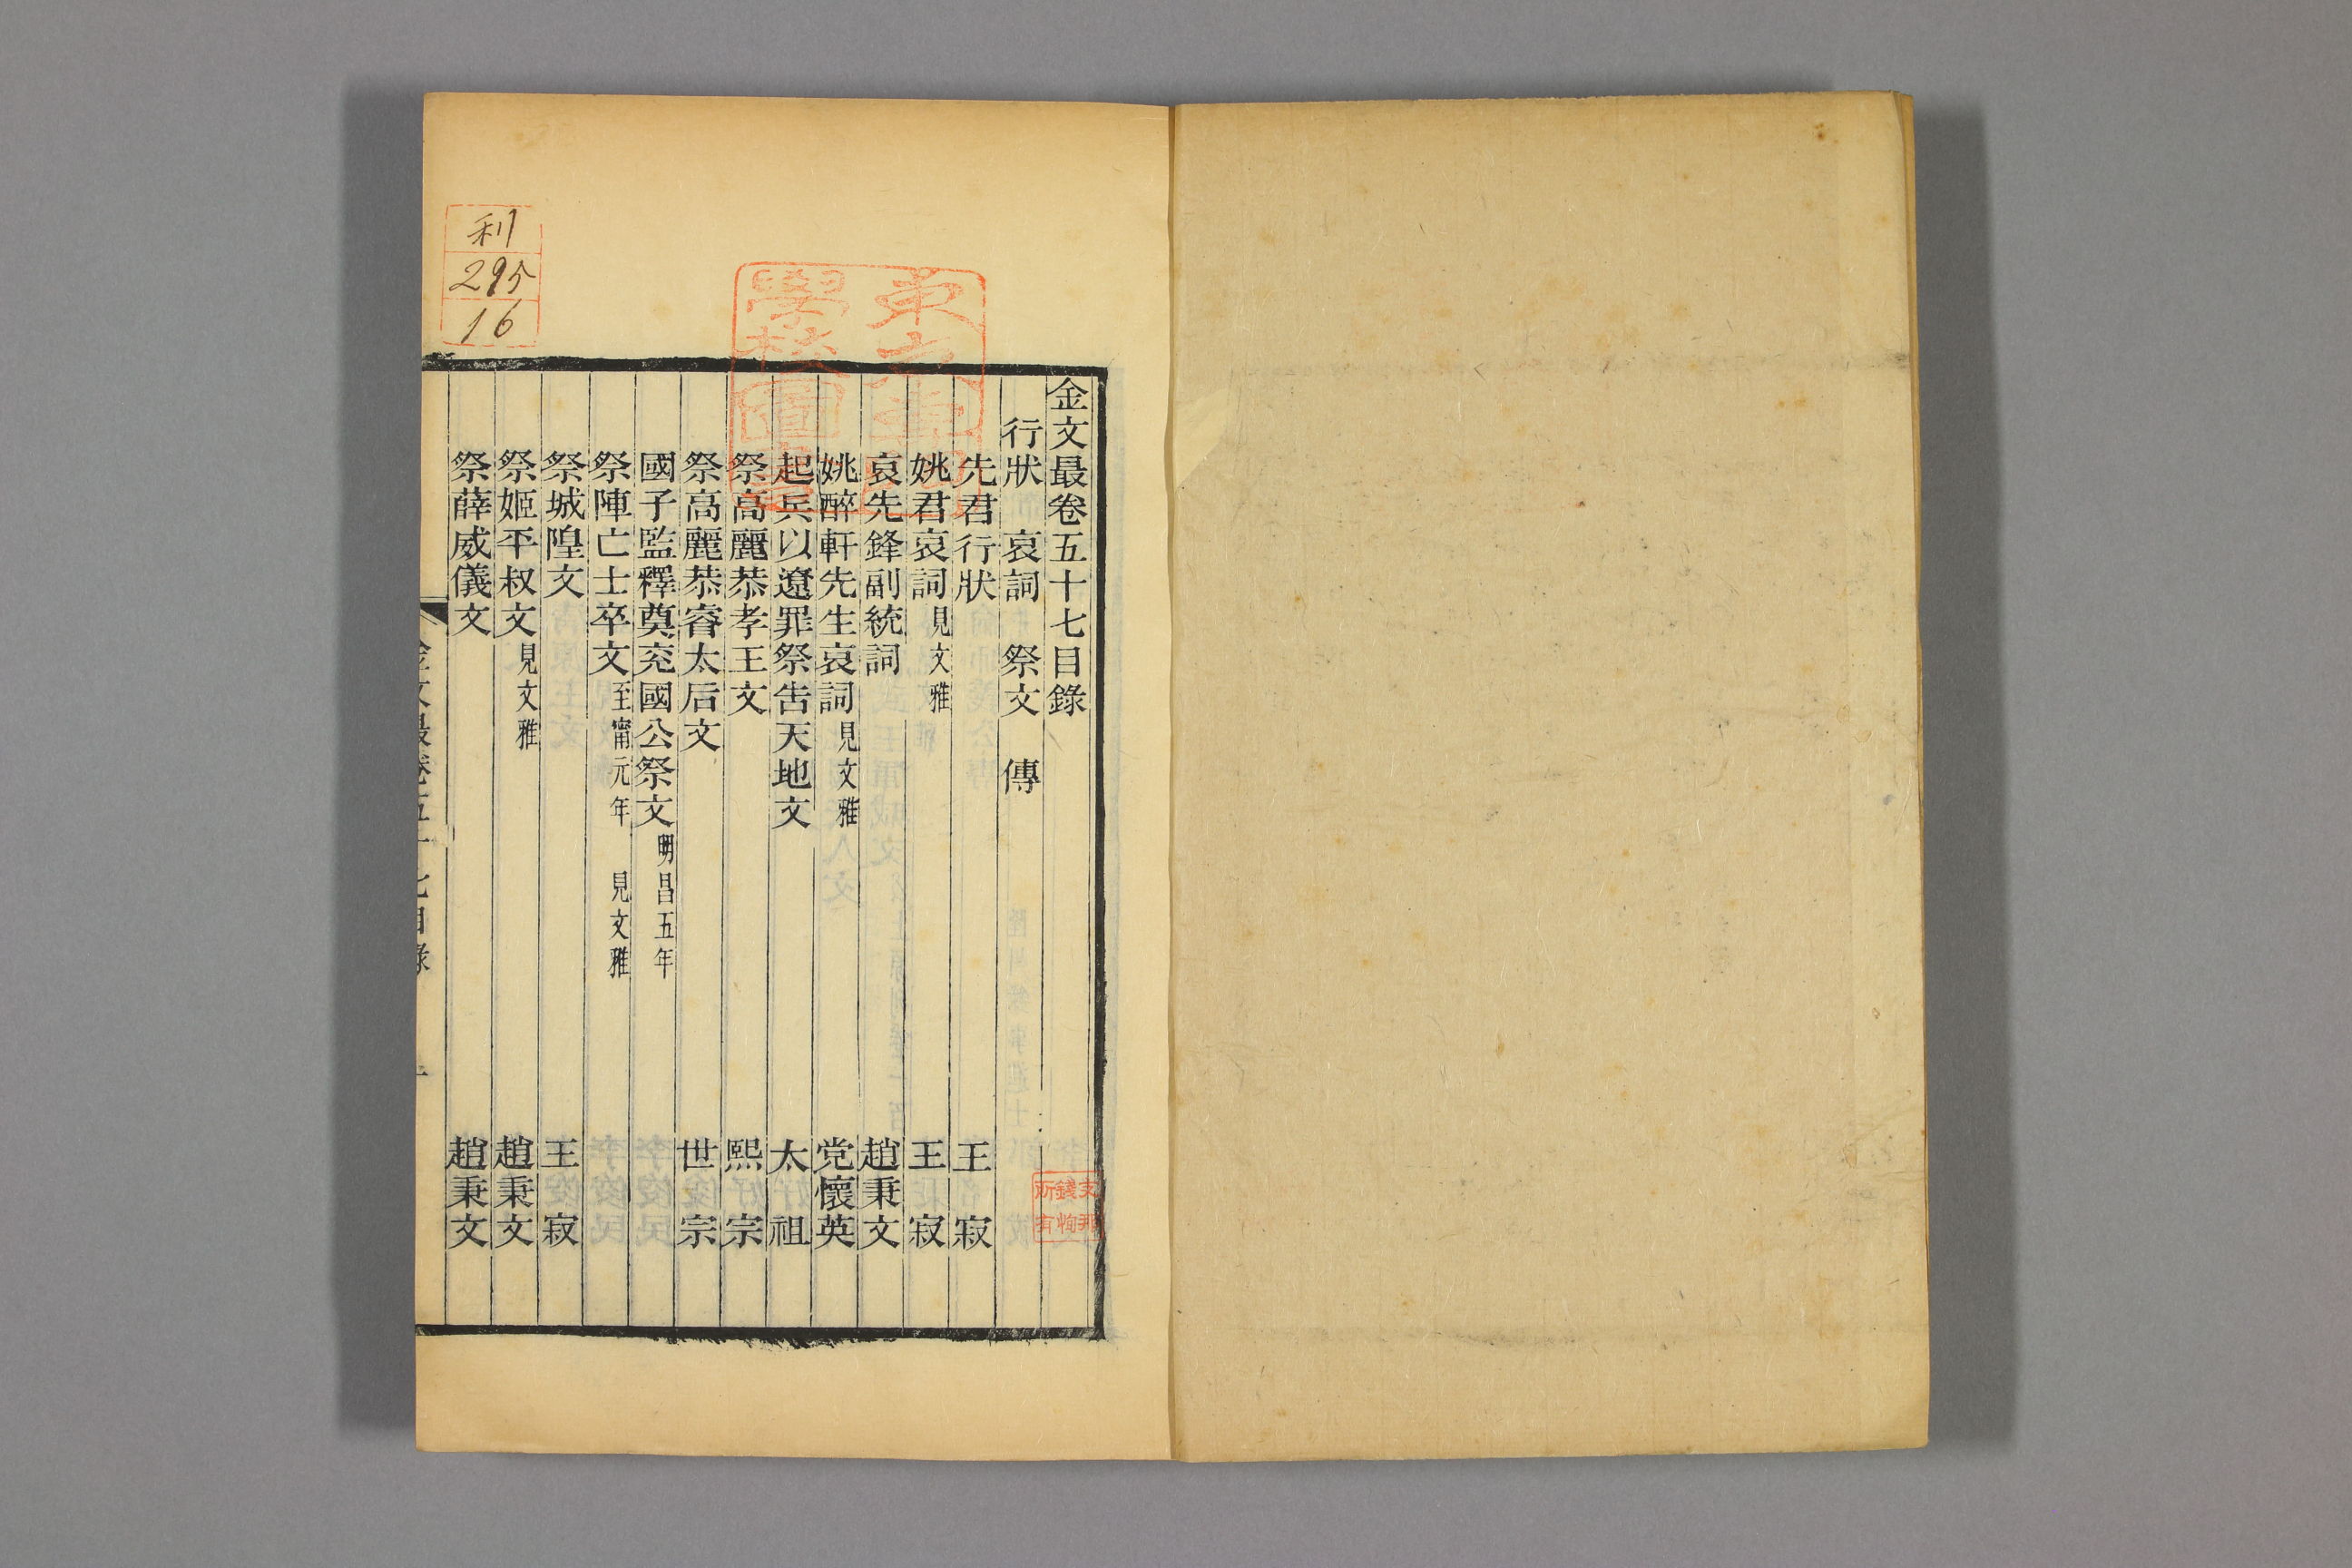 金文最卷五十七目錄
行狀 哀詞 祭文 傳
先君行狀 王寂
姚君哀詞 見文雅 王寂
哀先鋒副統詞 趙秉文
姚醉軒先生哀詞 見文雅 党懷英
起兵以遼罪祭告天地文 太祖
祭高麗恭孝王文 熙宗
祭高麗恭睿太后文 世宗
國子監釋奠兖國公祭文 明昌五年
祭陣亡士卒文 至甯元年 見文雅
祭城隍文 王寂
祭姬平叔文 見文雅 趙秉文
祭薛威儀文 趙秉文
金文最卷五十七目錄 一
利
295
16